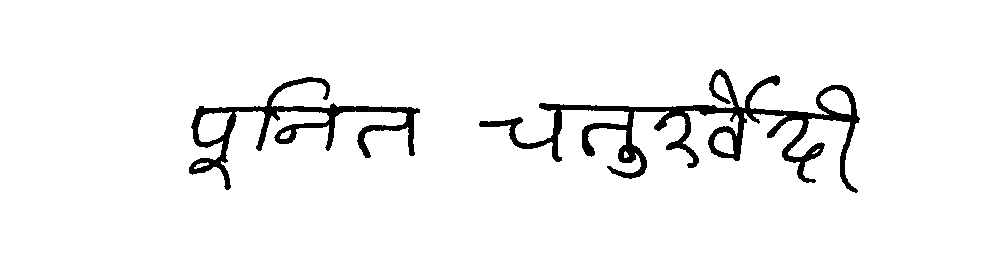 पूनित चतुरर्वेदी